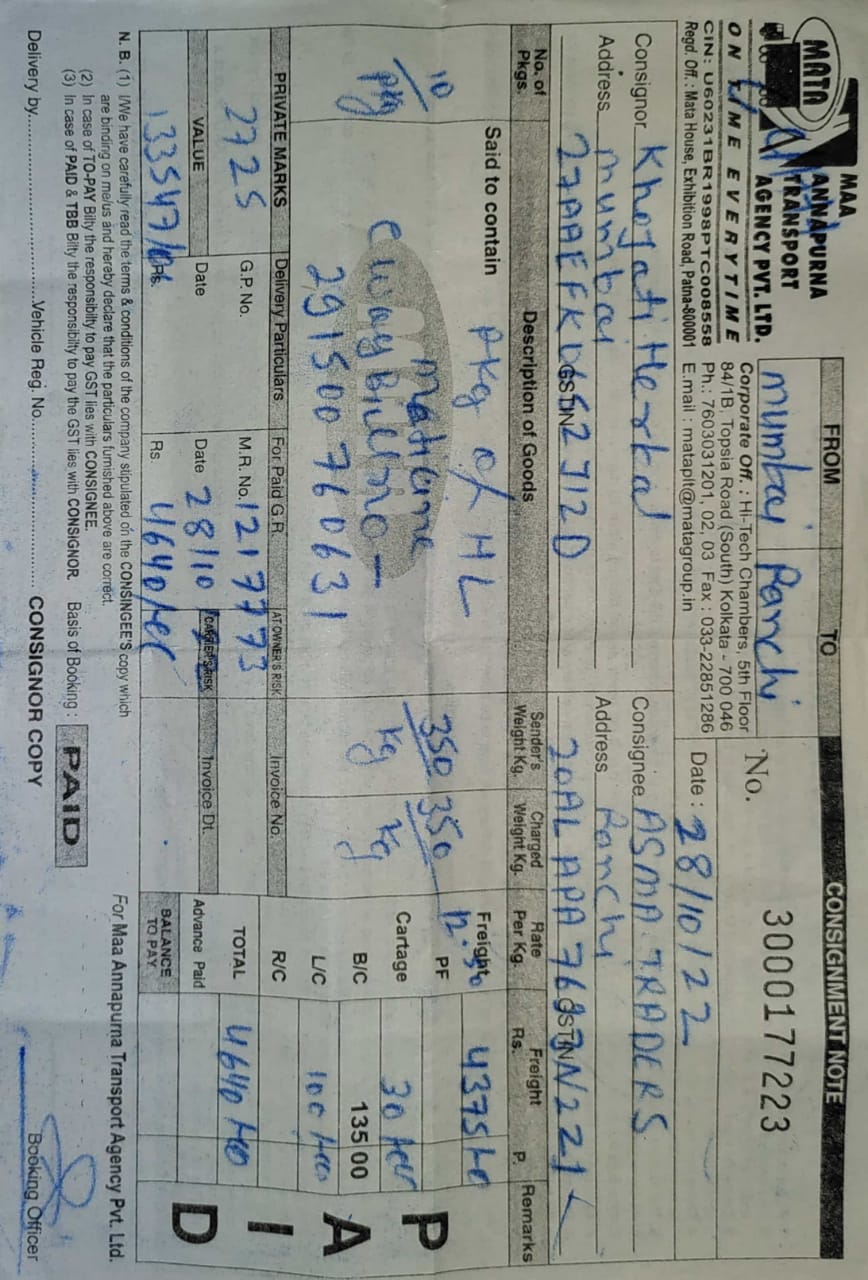 MATA
MAA
ANNAPURNA
TRANSPORT
AGENCY PVT. LTD.
ON TIME EVERYTIME
CIN: U60231BR1998PTC008558
Regd. Off. : Mata House, Exhibition Road, Patna-800001
FROM TO
Mumbai Ranchi
Corporate Off. : Hi-Tech Chambers, 5th Floor
84/1B, Topsia Road (South) Kolkata - 700 046
Ph.: 7603031201, 02, 03 Fax : 033-22851286
E.mail : mataplt@matagroup.in
CONSIGNMENT NOTE
No. 3000177223
Date : 28/10/22
Consignor Khojati Herbal
Address Mumbai
GSTIN
Consignee ASMA TRADERS
Address Ranchi
GSTIN
No. of Pkgs. Description of Goods Sender's Weight Kg. Charged Weight Kg. Rate Per Kg. Freight Rs. P. Remarks
Said to contain Pkg of HL
10 Pkg
Eway Bill No -
291500760631
350 Kg 350 Kg
12.50
Freight 4375
PF
Cartage 30
B/C 135 00
L/C 100
R/C
TOTAL 4640
Advance Paid
BALANCE TO PAY
PAID
PRIVATE MARKS Delivery Particulars For Paid G.R. AT OWNER'S RISK Invoice No.
2725 G.P. No. M.R. No. 1217773
VALUE Date Date 28/10 CARRIER'S RISK Invoice Dt.
133547 Rs. Rs. 4640
N. B. (1) I/We have carefully read the terms & conditions of the company stipulated on the CONSINGEE'S copy which
are binding on me/us and hereby declare that the particulars furnished above are correct.
(2) In case of TO-PAY Bilty the responsibilty to pay GST lies with CONSIGNEE.
(3) In case of PAID & TBB Bilty the responsibilty to pay the GST lies with CONSIGNOR.
Basis of Booking : PAID
For Maa Annapurna Transport Agency Pvt. Ltd.
Delivery by Vehicle Reg. No. CONSIGNOR COPY Booking Officer